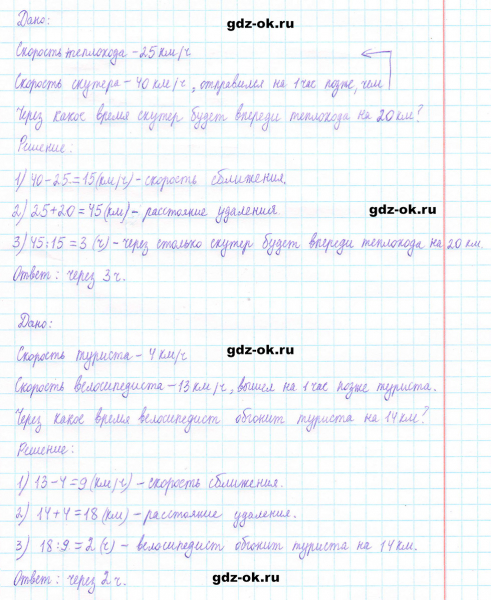 Дано:
gdz-ok.ru
Скорость теплохода - 25 км/ч
Скорость скутера - 40 км/ч, отправился на 1 час позже, чем
Через какое время скутер будет впереди теплохода на 20 км?
Решение:
gdz-ok.ru
1) 40-25=15(км/ч) - скорость сближения.
gdz-ok.ru
2) 25+20=45(км) - расстояние удаления
3) 45:15=3 (ч) - через столько скутер будет впереди теплохода на 20 км
Ответ: через 3 ч.
gdz-ok.ru
Дано:
gdz-ok.ru
Скорость туриста - 4 км/ч
Скорость велосипедиста - 13 км/ч, вышел на 1 час позже туриста.
Через какое время велосипедист обгонит туриста на 14 км?
Решение:
gdz-ok.ru
1) 13-4=9(км/ч) - скорость сближения.
2) 14+4=18(км) - расстояние удаления.
gdz-ok.ru
3) 18:9=2(ч) - велосипедист обгонит туриста на 14 км.
Ответ: через 2 ч.
gdz-ok.ru